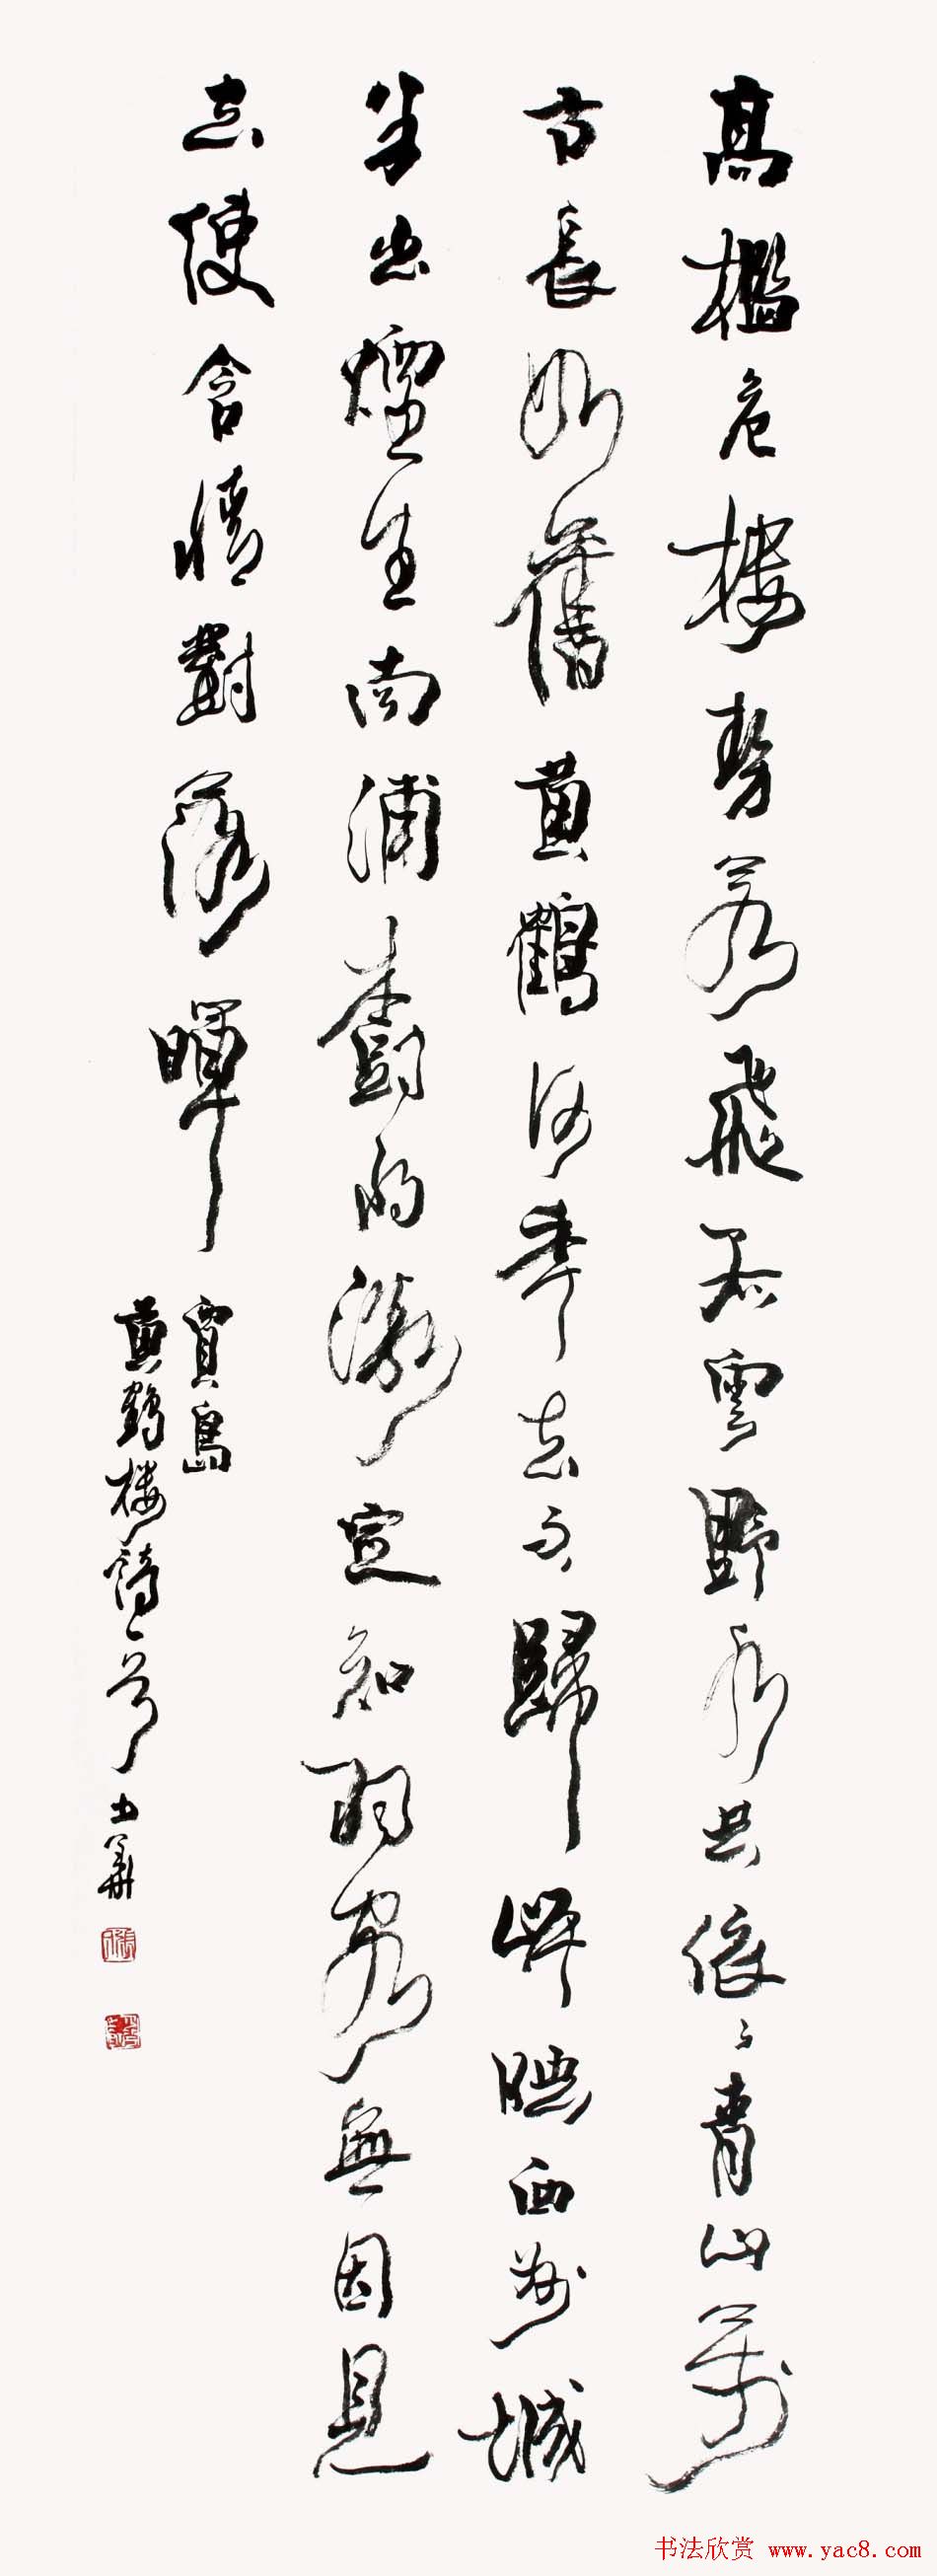 高檻危樓勢若飛孤雲野水共依〻青山萬
古長如舊黃鶴何年去不歸岸映西州城
半出煙生南浦樹將微定知羽客無因見
空使含情對落暉
賈島
黃鶴樓詩一首 士華
书法欣赏 www.yac8.com